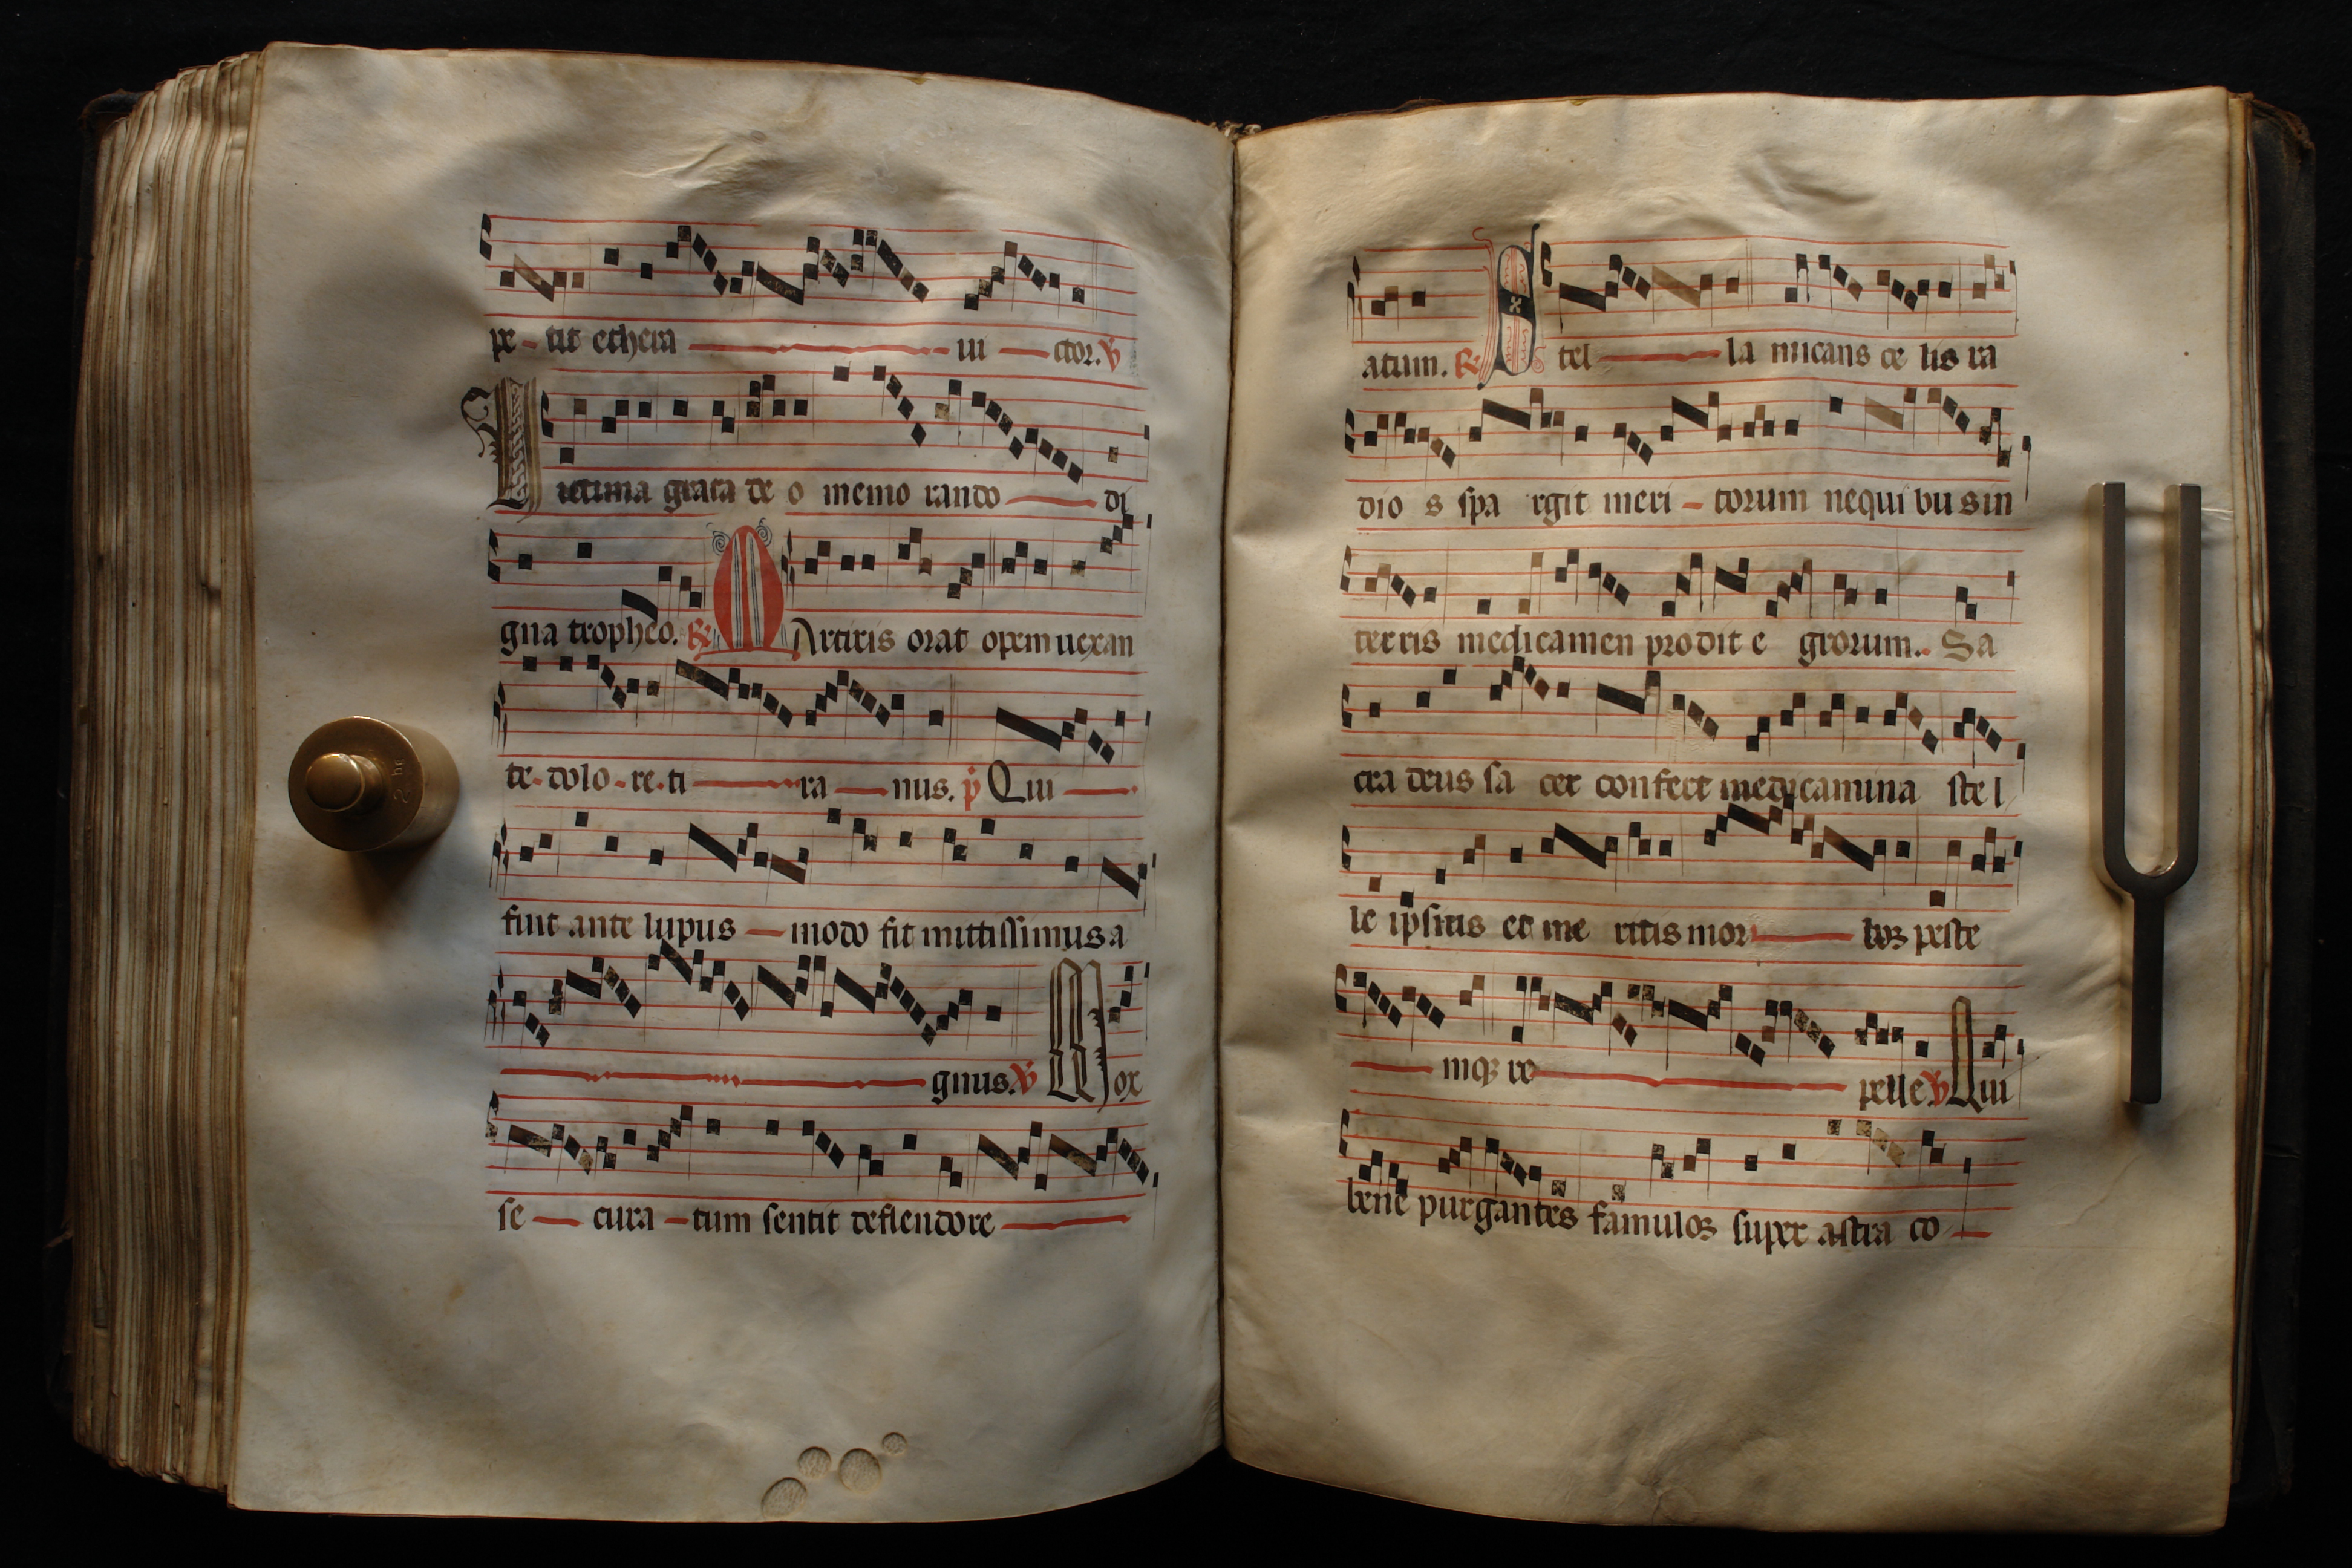 pe - tit ethera ui ctor. ℣
Uictima grata de o memo rando di
gna tropheo. ℟ Martiris orat opem uexan
te. dolo. re. ti ra nus. p Qui
fuit ante lupus modo fit mittissimus a
gnus. ℣ Mox
se cura tum sentit deflendore
atum. ℟ Stel la micans ce lis ra
dio s spa rgit meri - torum nequi bus in
terris medicamen prodit e grorum. Sa
cra deus sa cer confert medicamina stel
le ipsius et me ritis mor boꝝ peste
mqꝫ re pelle ℣ Qui
bene purgantes famuloꝝ super astra co